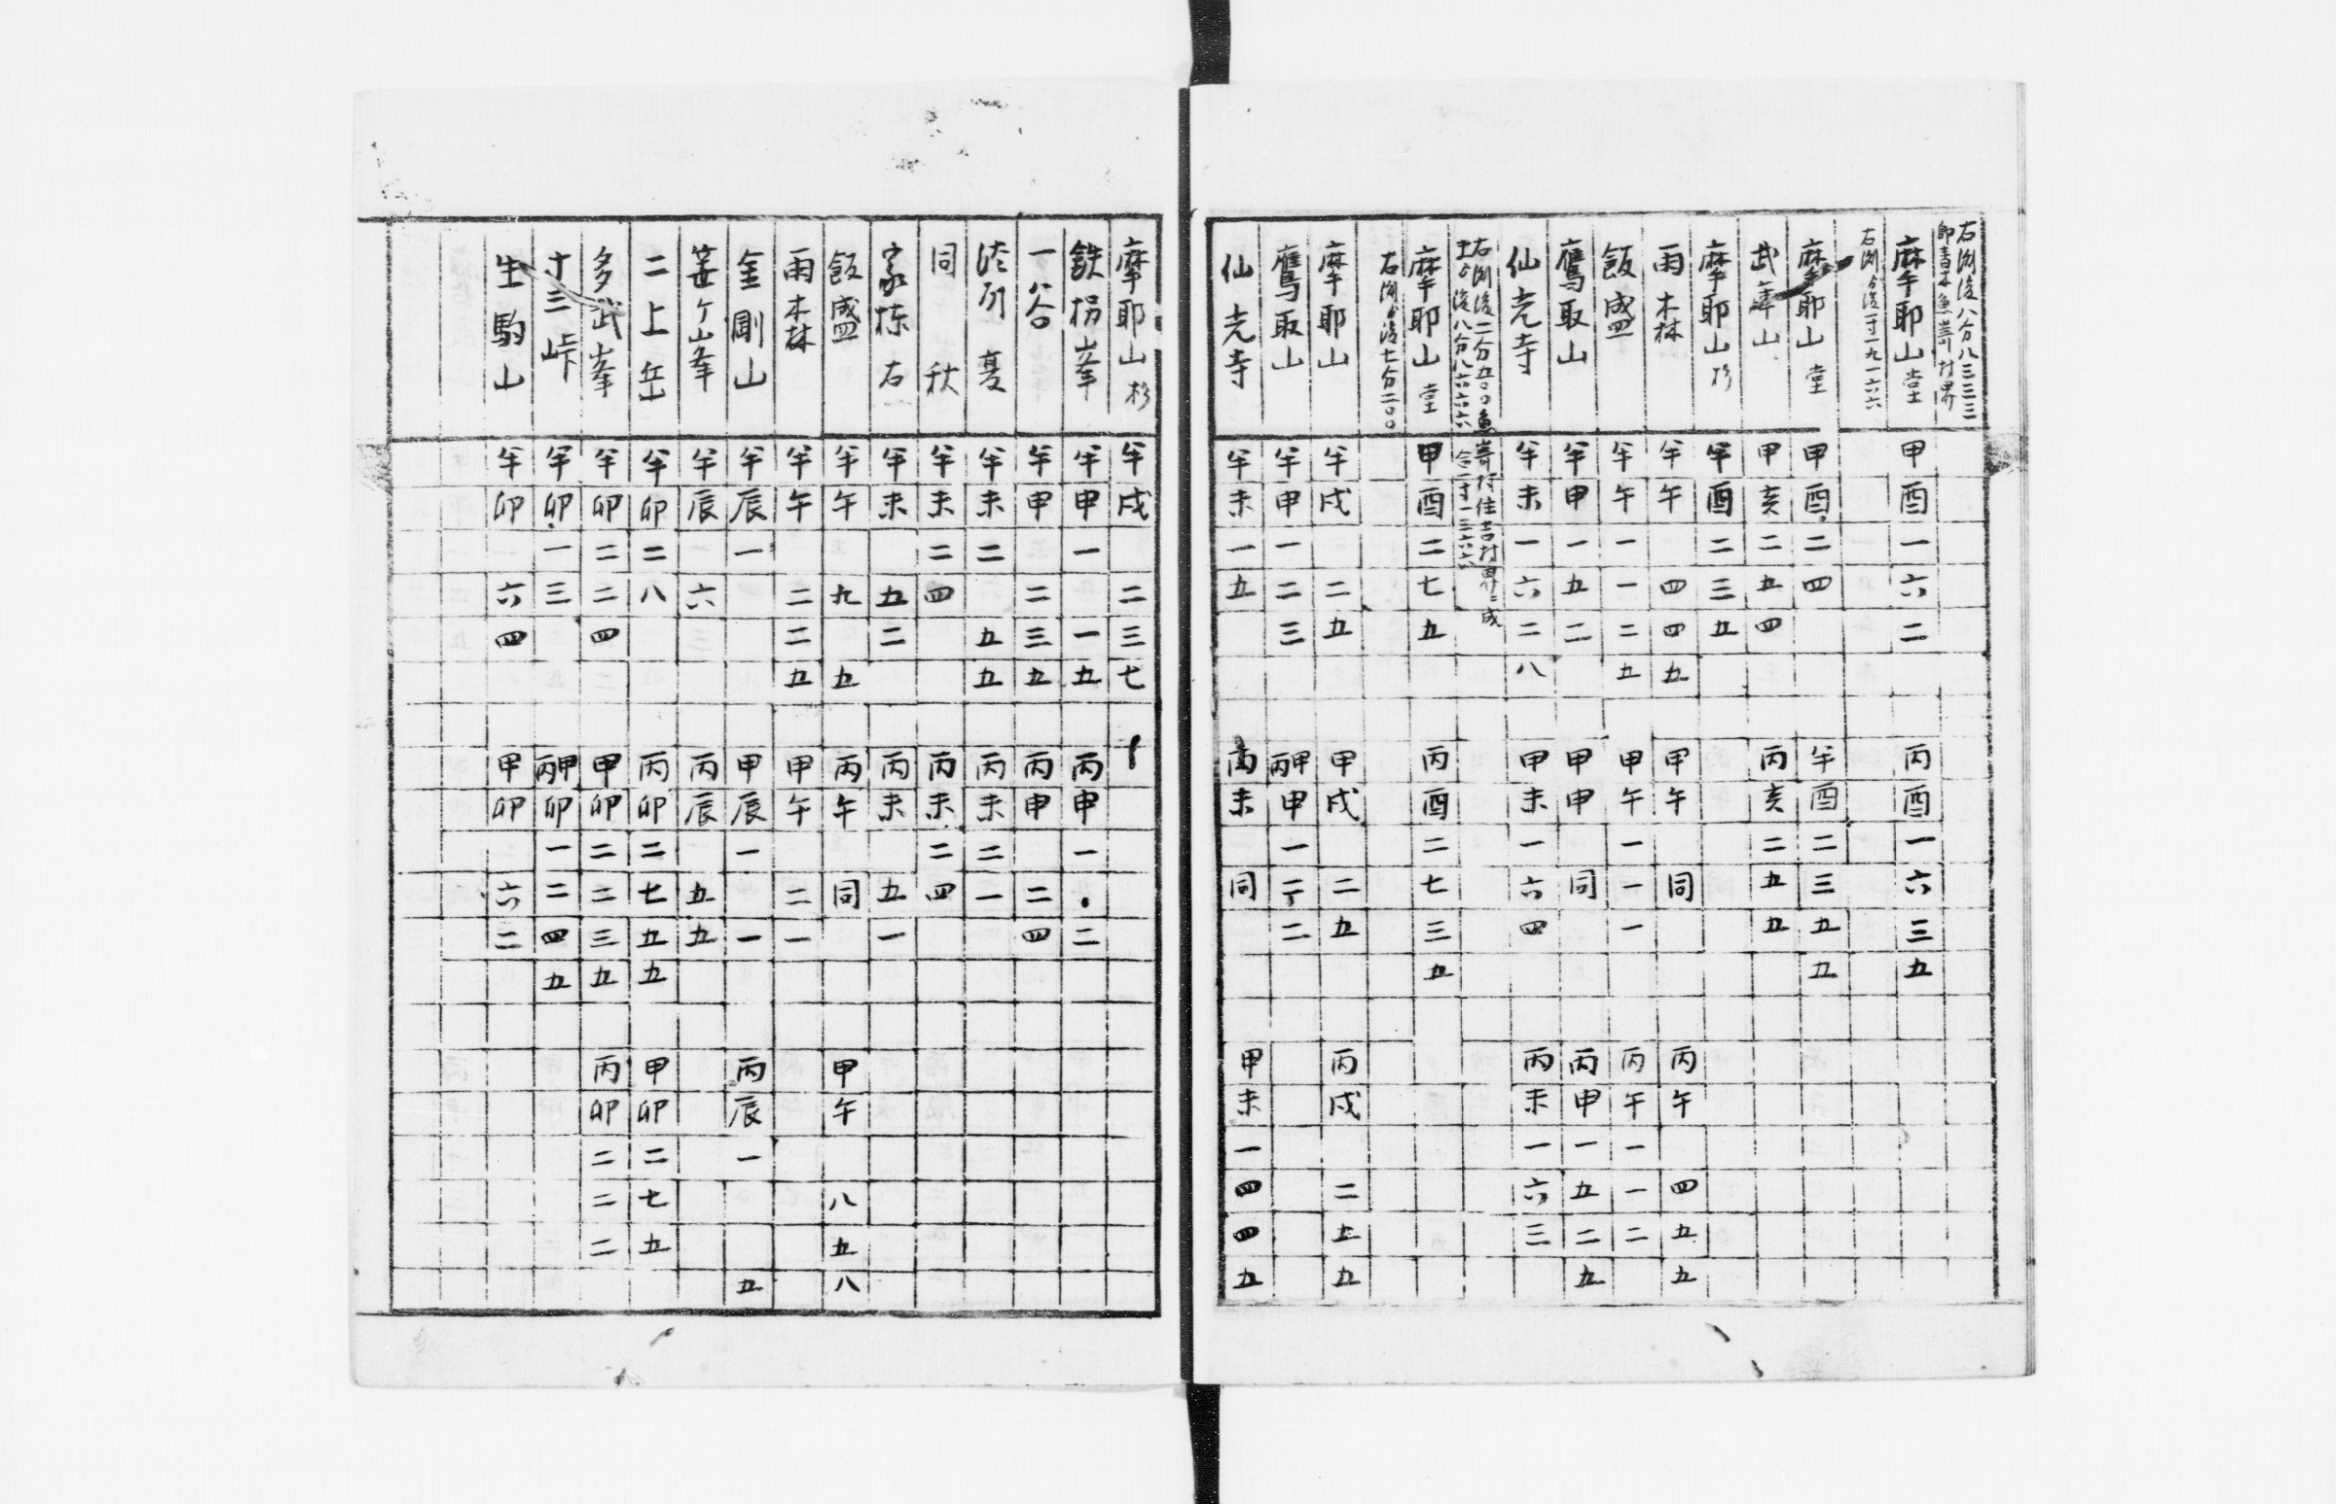 右測後八分八三三三
即青木魚崎村界
摩耶山堂 甲酉一六二 丙酉一六三五
右測ゟ後一寸一九一六六
摩耶山堂 甲酉二四 午酉二三五五
武庫山 甲亥二五四 丙亥二五五
摩耶山杉 午酉二三五
雨木森 午午四四五 甲午同 丙午四五五
飯盛 午午一一二五 甲午一一一 丙午一一二
鷹取山 午申一五二 甲申同 丙申一五二五
仙光寺 午未一六二八 甲未一六四 丙未一六三
右測後二分五〇〇魚崎村住吉村界ニ成
ゟ後八分八六六六
摩耶山堂 甲酉二七五 丙酉二七三五
右測ゟ後七分二〇〇
摩耶山 午戌二五 甲戌二五 丙戌二五五
鷹取山 午申一二三 丙甲申一二二
仙光寺 午未一五 丙未同 甲未一四四五
摩耶山杉 午戌二三七
鉄拐峯 午申一一五 丙申一〃二
一谷 午申二三五 丙申二四
淡刕 夏 午未二五五 丙未二一
同 秋 午未二四 丙未二四
家栋 右 午未五二 丙未五一
飯盛 午午九五 丙午同 甲午八五八
雨木森 午午二二五 甲午二一
金剛山 午辰一 甲辰一一 丙辰一五
峯 午辰六 丙辰五五
二上岳 午卯二八 丙卯二七五五 甲卯二七五
多武峯 午卯二二四 甲卯二二三五 丙卯二二二
十三峠 午卯一三 丙甲卯一二四五
生駒山 午卯六四 甲卯六二